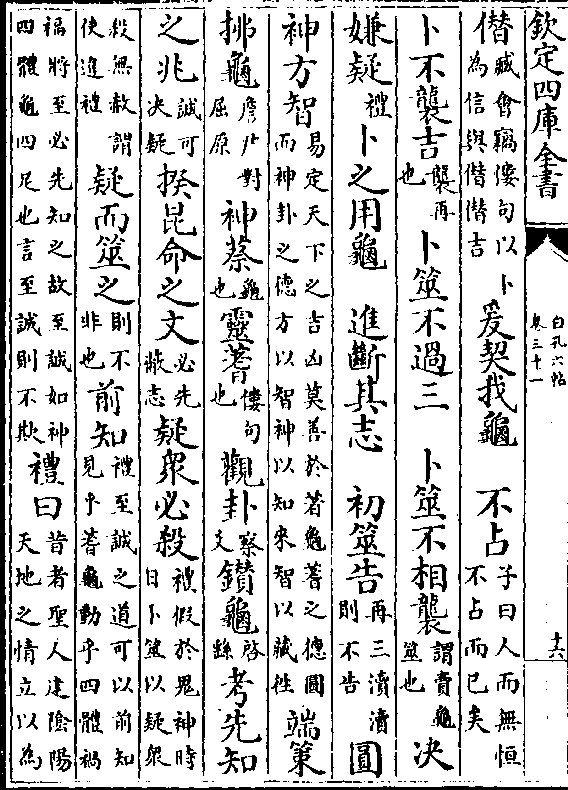 欽定四庫全書
白孔六帖
卷三十一
十六
僣臧會竊僂句以卜為信與僣僣吉 爰契我龜 不占子曰人而無恒不占而已矣
卜不襲吉襲再也 卜筮不過三 卜筮不相襲謂賣龜筮也 決
嫌疑禮 卜之用龜 進斷其志 初筮告再三瀆瀆則不告 圓
神方智易定天下之吉凶莫善於蓍龜蓍之德圓而神卦之德方以智神以知來智以藏往 端策
拂龜詹尹對屈原 神蔡龜也 靈蓍僂句也 觀卦察文 鑚龜啓繇 考先知
之兆誠可決疑 揆昆命之文必先蔽志 疑衆必殺禮假於鬼神時日卜筮以疑衆
殺無赦謂使進禮 疑而筮之則不非也 前知禮至誠之道可以前知見乎蓍龜動乎四體禍
福將至必先知之故至誠如神四體龜四足也言至誠則不欺 禮曰昔者聖人建隂陽天地之情立以為